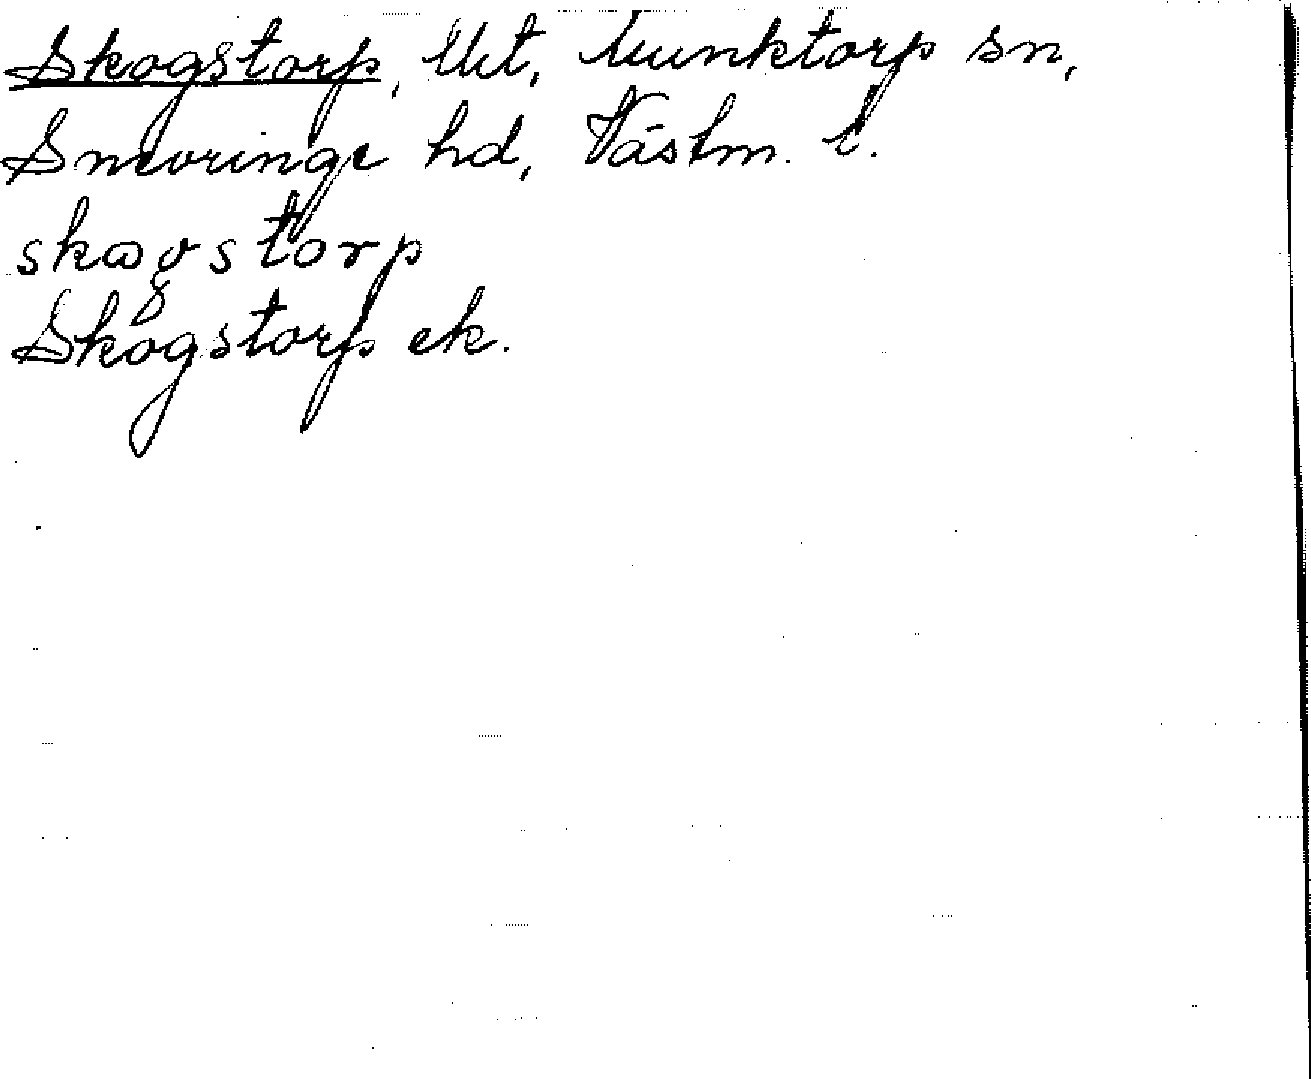 Skogstorp, Munktorp sn,
Snevringe hd, Västm. l.
skogstorp
Skogstorp ek.